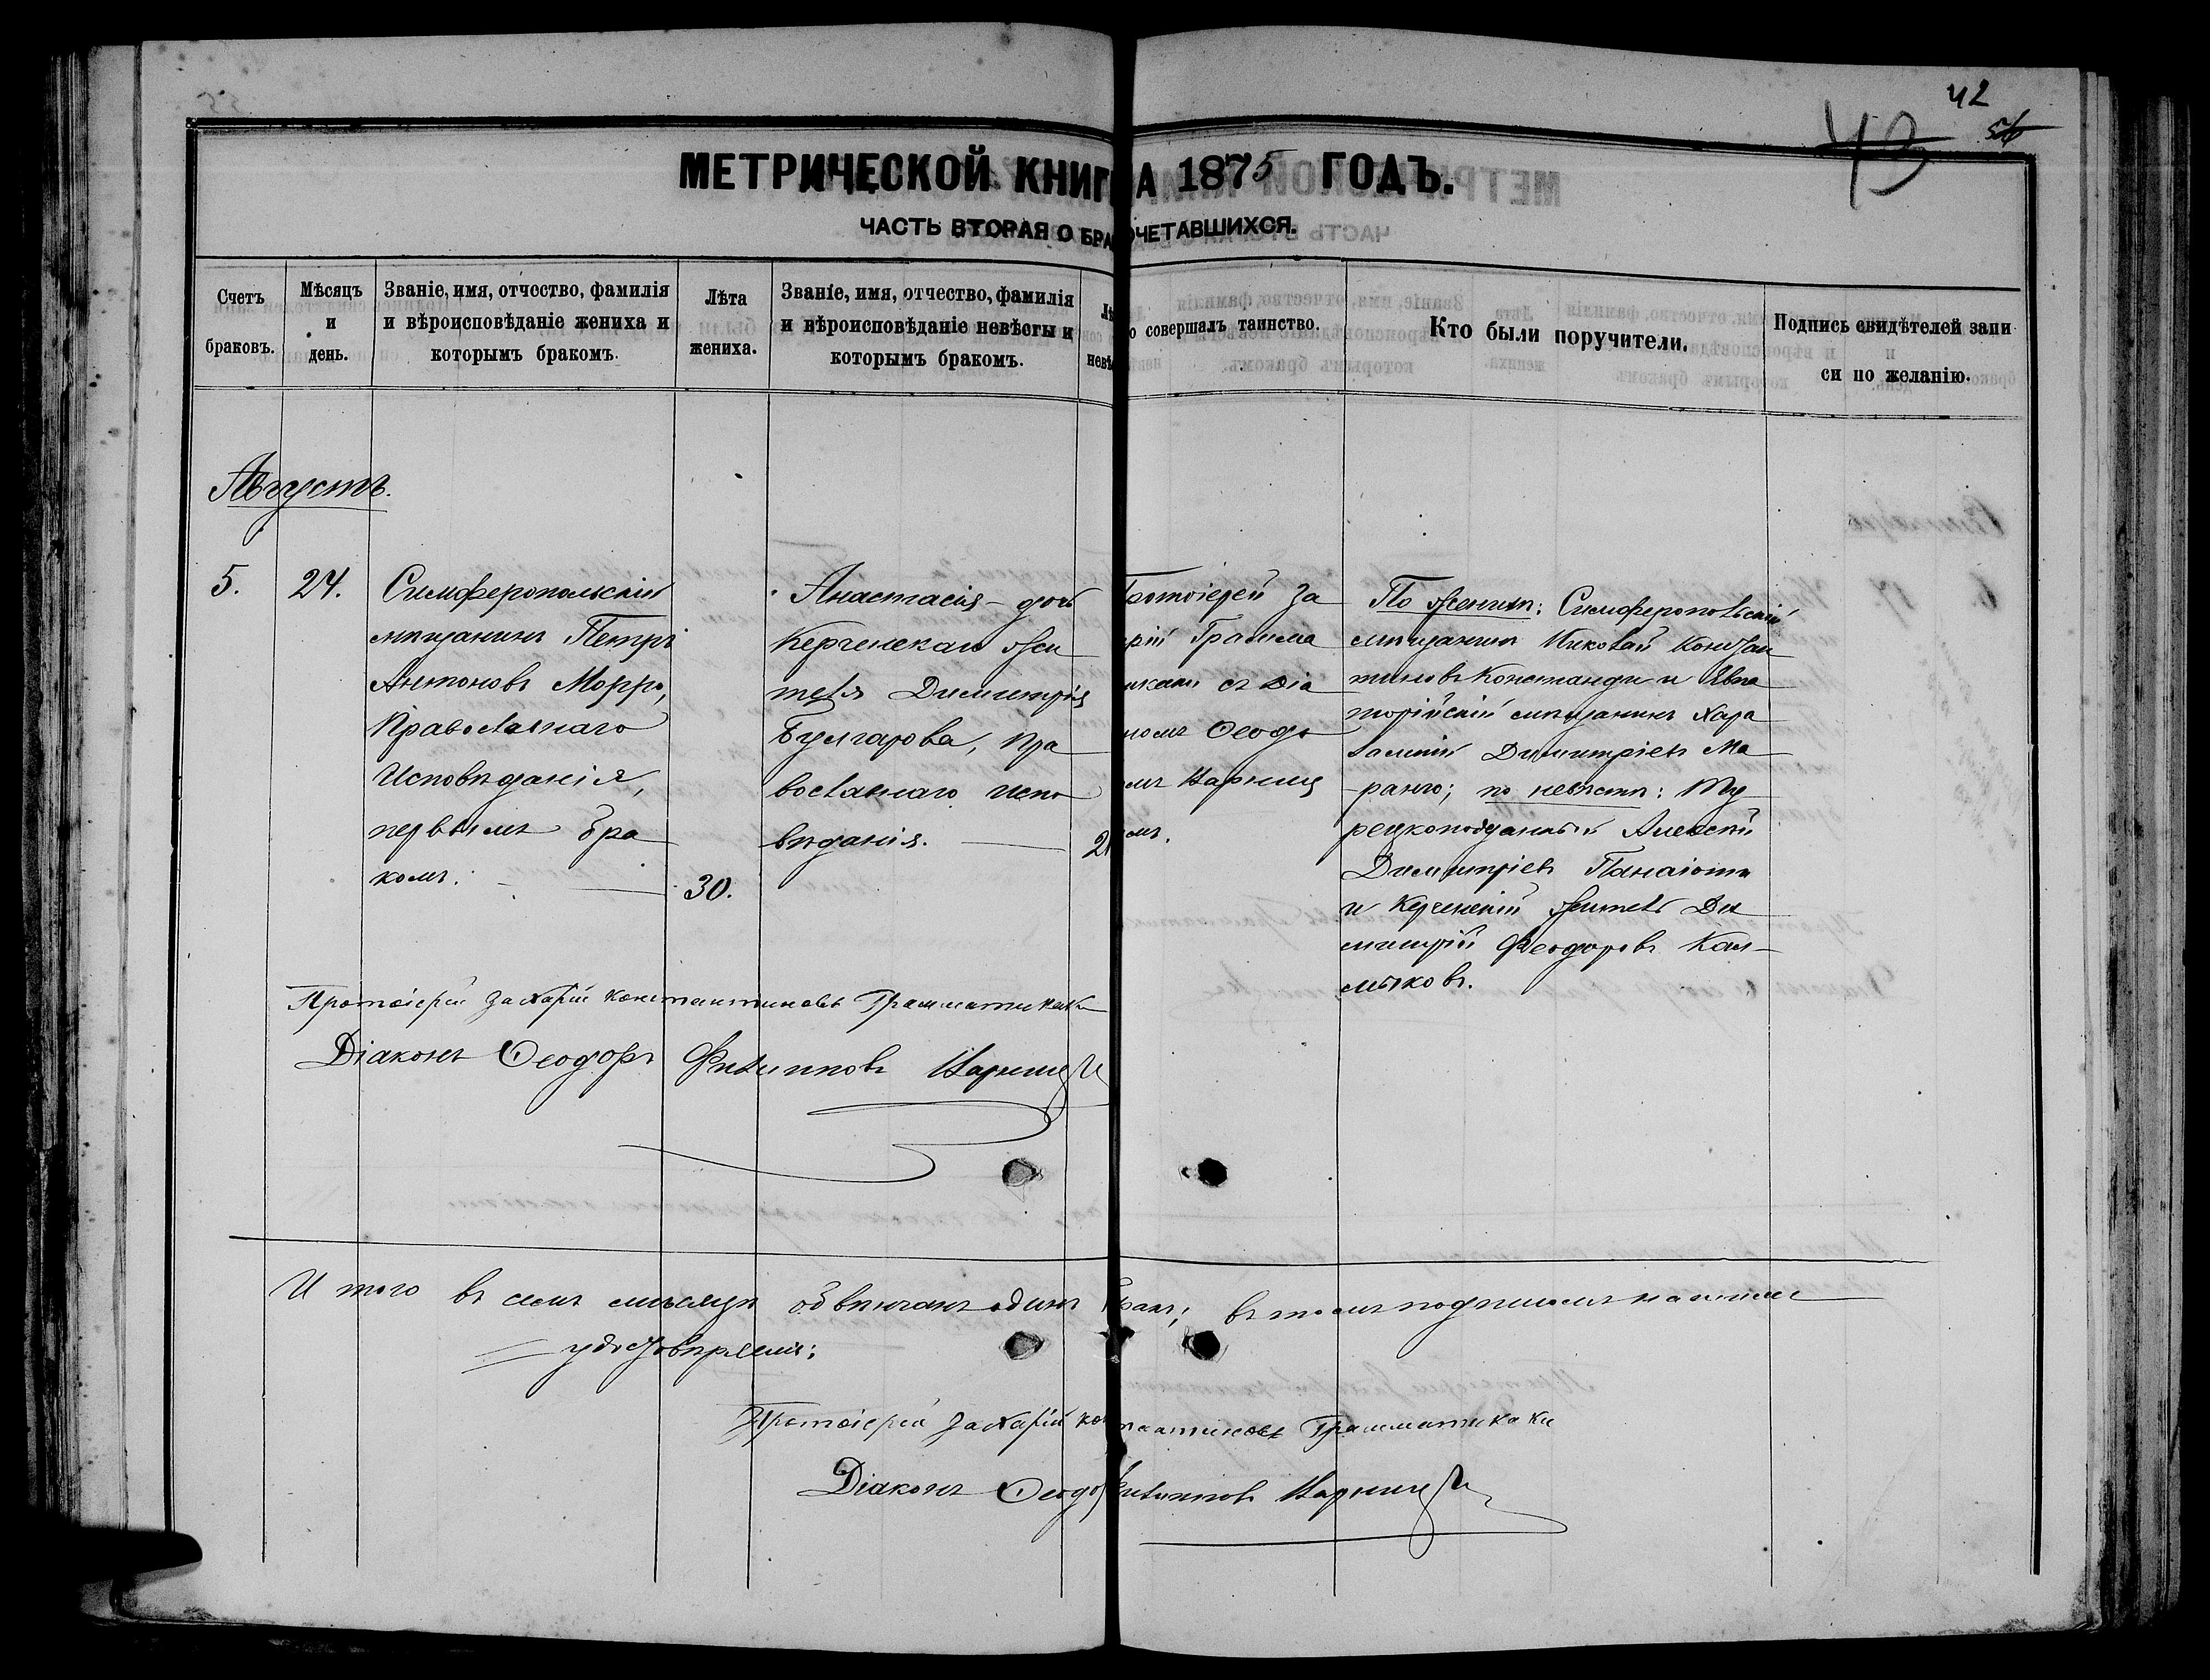 42
43
56
МЕТРИЧЕСКОЙ КНИГ А 1875 ГОДЪ.
ЧАСТЬ ВТОРАЯ О БРА ОЧЕТАВШИХСЯ.
Счетъ браковъ.
Мѣсяцъ и день.
Званіе, имя, отчество, фамилія
и вѣроисповѣданіе жениха и
которымъ бракомъ.
Лѣта
жениха.
Званіе, имя, отчество, фамилія
и вѣроисповѣданіе невѣсты и
которымъ бракомъ.
Лѣ
невѣ
о совершалъ таинство.
Кто были поручители.
Подпись свидѣтелей запи
си по желанію.
Августъ.
5.
24.
Симферопольскій
мѣщанинъ Петръ
Антоновъ Морро,
Православнаго
Исповѣданія,
первымъ бра
комъ.
30.
Анастасія – дочь
Керченскаго жи
теля Димитрія
Булгарова, пра
вославнаго испо
вѣданія.
21
ротоіерей За
рій Грамма
икаки съ діа
номъ Ѳеодо
мъ Царници
мъ.
По женихѣ: Симферопольскій
мѣщанинъ Николай Констан
тиновъ Констанди и Евпа
торійскій мѣщанинъ Хара
лампій Димитріевъ Ма
ранго; по невѣстѣ: Ту
рецкоподданный Алексѣй
Димитріевъ Панаіоти
и Керченскій житель Ди
митрій Феодоровъ Кал
мыковъ.
Протоіерей Захарій Константиновъ Грамматикаки
Діаконъ Ѳеодоръ Филипповъ Царници
И того въ семъ мѣсяцѣ обвѣнчанъ одинъ бракъ; въ томъ подписомъ нашимъ
удостовѣряемъ:
Протоіерей Захарій Кон таантиновъ Грамматикаки
Діаконъ Ѳеодо Филипповъ Царници